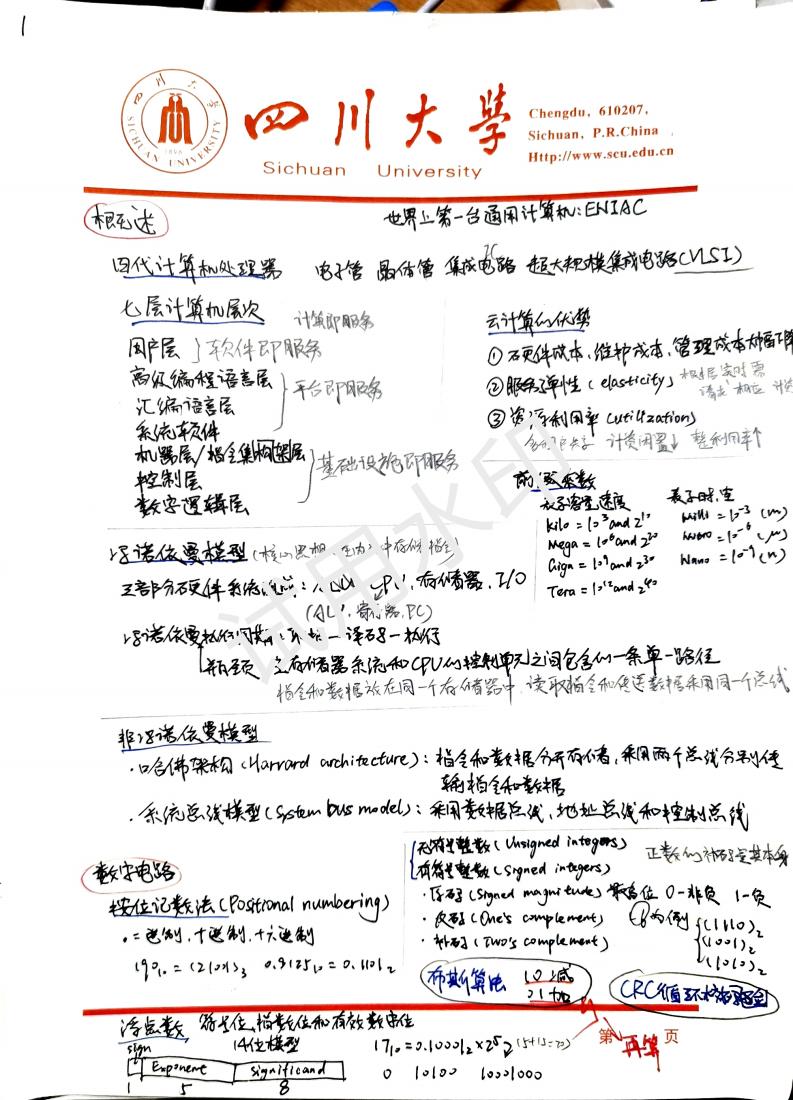 1
四川大学
Sichuan University
SICHUAN UNIVERSITY
1896
Chengdu, 610207,
Sichuan, P.R.China
Http://www.scu.edu.cn
概述
世界上第一台通用计算机: ENIAC
四代计算机处理器 电子管 晶体管 集成电路 超大规模集成电路(VLSI)
IC
七层计算机层次 计算即服务
用户层 } 软件即服务
高级编程语言层
汇编语言层 } 平台即服务
系统软件
机器层/指令集构架层
控制层 } 基础设施即服务
数字逻辑层
云计算的优势
① 硬件成本、维护成本、管理成本大幅下降
② 服务弹性(elasticity) 根据实时需
③ 资源利用率(utilization)
计算闲置↓ 整利用率↑
前缀系数
表示容量、速度
Kilo = 10³ and 2¹⁰
Mega = 10⁶ and 2²⁰
Giga = 10⁹ and 2³⁰
Tera = 10¹² and 2⁴⁰
表示时、空
Milli = 10⁻³ (m)
Micro = 10⁻⁶ (μ)
Nano = 10⁻⁹ (n)
冯诺依曼模型
三部分硬件系统 存储器、I/O
寄存器、PC)
冯诺依曼执行周期: 译码—执行
瓶颈 主存储器系统和CPU的控制单元之间包含的一条单一路径
指令和数据放在同一个存储器中,读取指令和传送数据采用同一个总线
非冯诺依曼模型
·哈佛架构(Harvard architecture): 指令和数据分开存储,采用两个总线分别传
输指令和数据
·系统总线模型(System bus model): 采用数据总线、地址总线和控制总线
数字电路
按位记数法(Positional numbering)
·二进制,十进制,十六进制
19₁₀ = (201)₃ 0.8125₁₀ = 0.1101₂
无符号整数(Unsigned integers)
有符号整数(Signed integers)
正数的补码是其本身
·原码(Signed magnitude) 最高位 0-非负 1-负
·反码(One's complement)
·补码(Two's complement)
-6为例
(1110)₂
(1001)₂
(1010)₂
布斯算法 10减
01加
CRC循环
浮点数 符号位、指数位和有效数字位
sign 14位模型
Exponent significand
1 5 8
17₁₀ = 0.10001₂ × 2⁵ (5+15=20)
0 10100 10001000
第 页
再算
试用水印